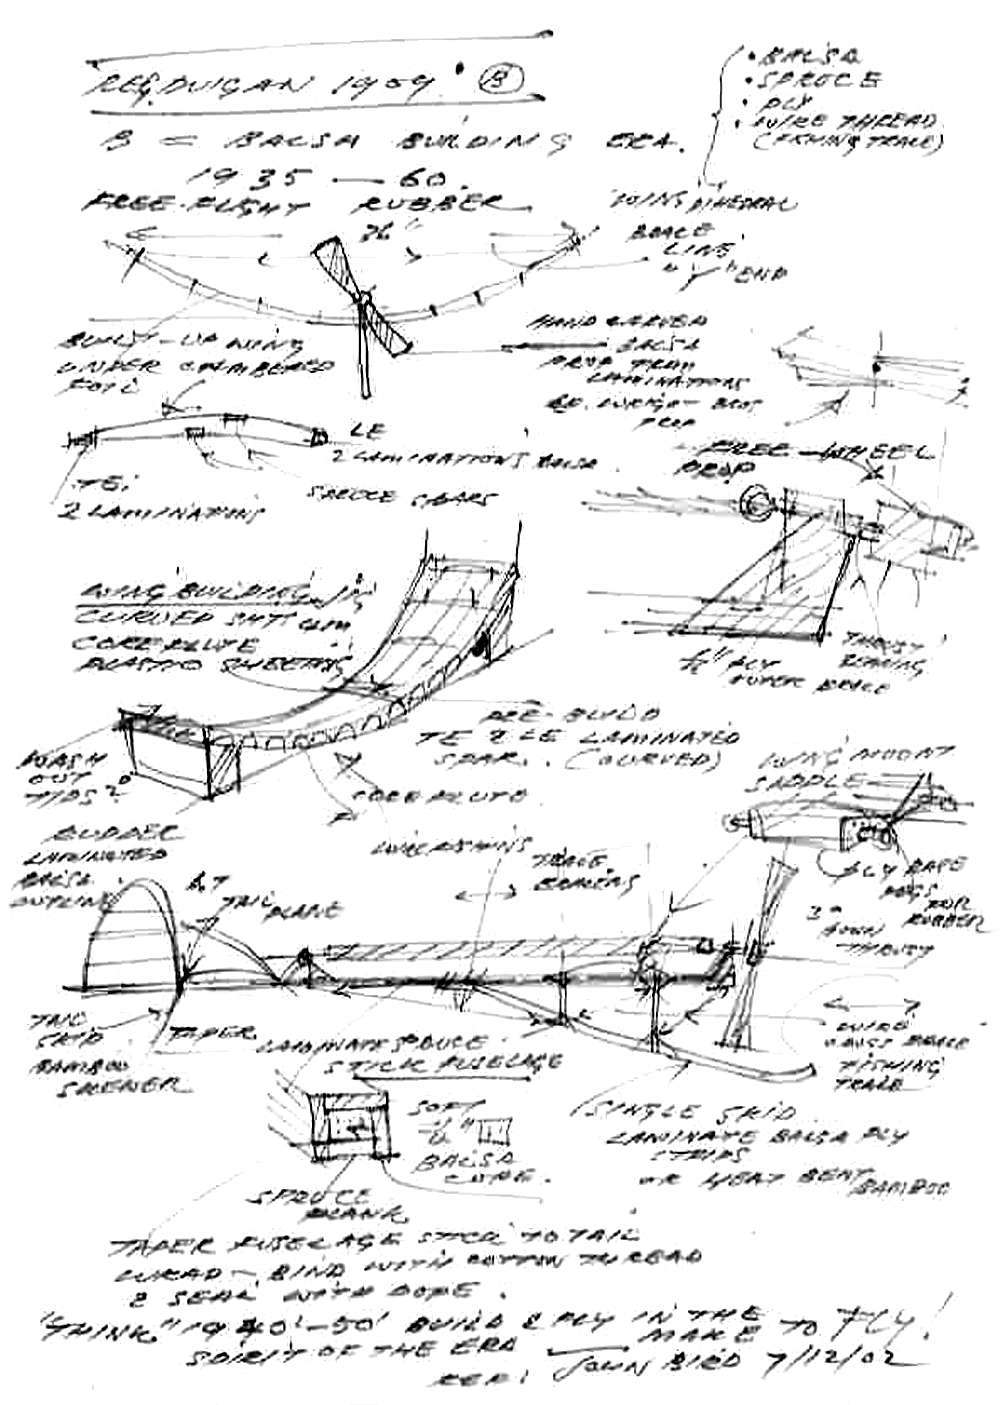 REG. DUIGAN 1909. B
• BALSA
• SPRUCE
• PLY
• WIRE THREAD
(FISHING TRACE)
B = BALSA BUILDING ERA.
1935 — 60.
FREE-FLIGHT RUBBER
36"
WING DIHEDRAL
BRACE
LINE
"Y" END
BUILT-UP WING
UNDER CAMBERED
FOIL
HAND CARVED
BALSA
PROP FROM
LAMINATIONS
PROP
LE
2 LAMINATIONS BALSA
SPRUCE SPARS
TE:
2 LAMINATIONS
FREE-WHEEL
PROP
WING BUILDING JIG
CURVED
COREFLUTE
PLASTIC SHEETING
THRUST
BEARING
1/16" PLY
BRACE
PRE-BUILD
TE & LE LAMINATED
SPAR. (CURVED)
COREFLUTE
WASH
OUT
TIPS 2°
WING MOUNT
SADDLE
RUDDER
LAMINATED
BALSA
OUTLINE
TRACE
BRACING
TAIL PLANE
PLY BASE
PEGS FOR
RUBBER
3°
DOWN
THRUST
TAIL
SKID
BAMBOO
SKEWER
TAPER
LAMINATE SPRUCE
STICK FUSELAGE
WIRE
BRACE
FISHING
TRACE
SOFT
BALSA
CORE.
SPRUCE
PLANK
(SINGLE SKID
LAMINATE BALSA PLY
STRIPS
OR HEAT BENT BAMBOO
TAPER FUSELAGE STICK TO TAIL
BIND WITH COTTON THREAD
& SEAL WITH DOPE.
"THINK" 1940'-50' BUILD & FLY IN THE
SPIRIT OF THE ERA — MAKE TO FLY!
REF: JOHN BIRD 7/12/02